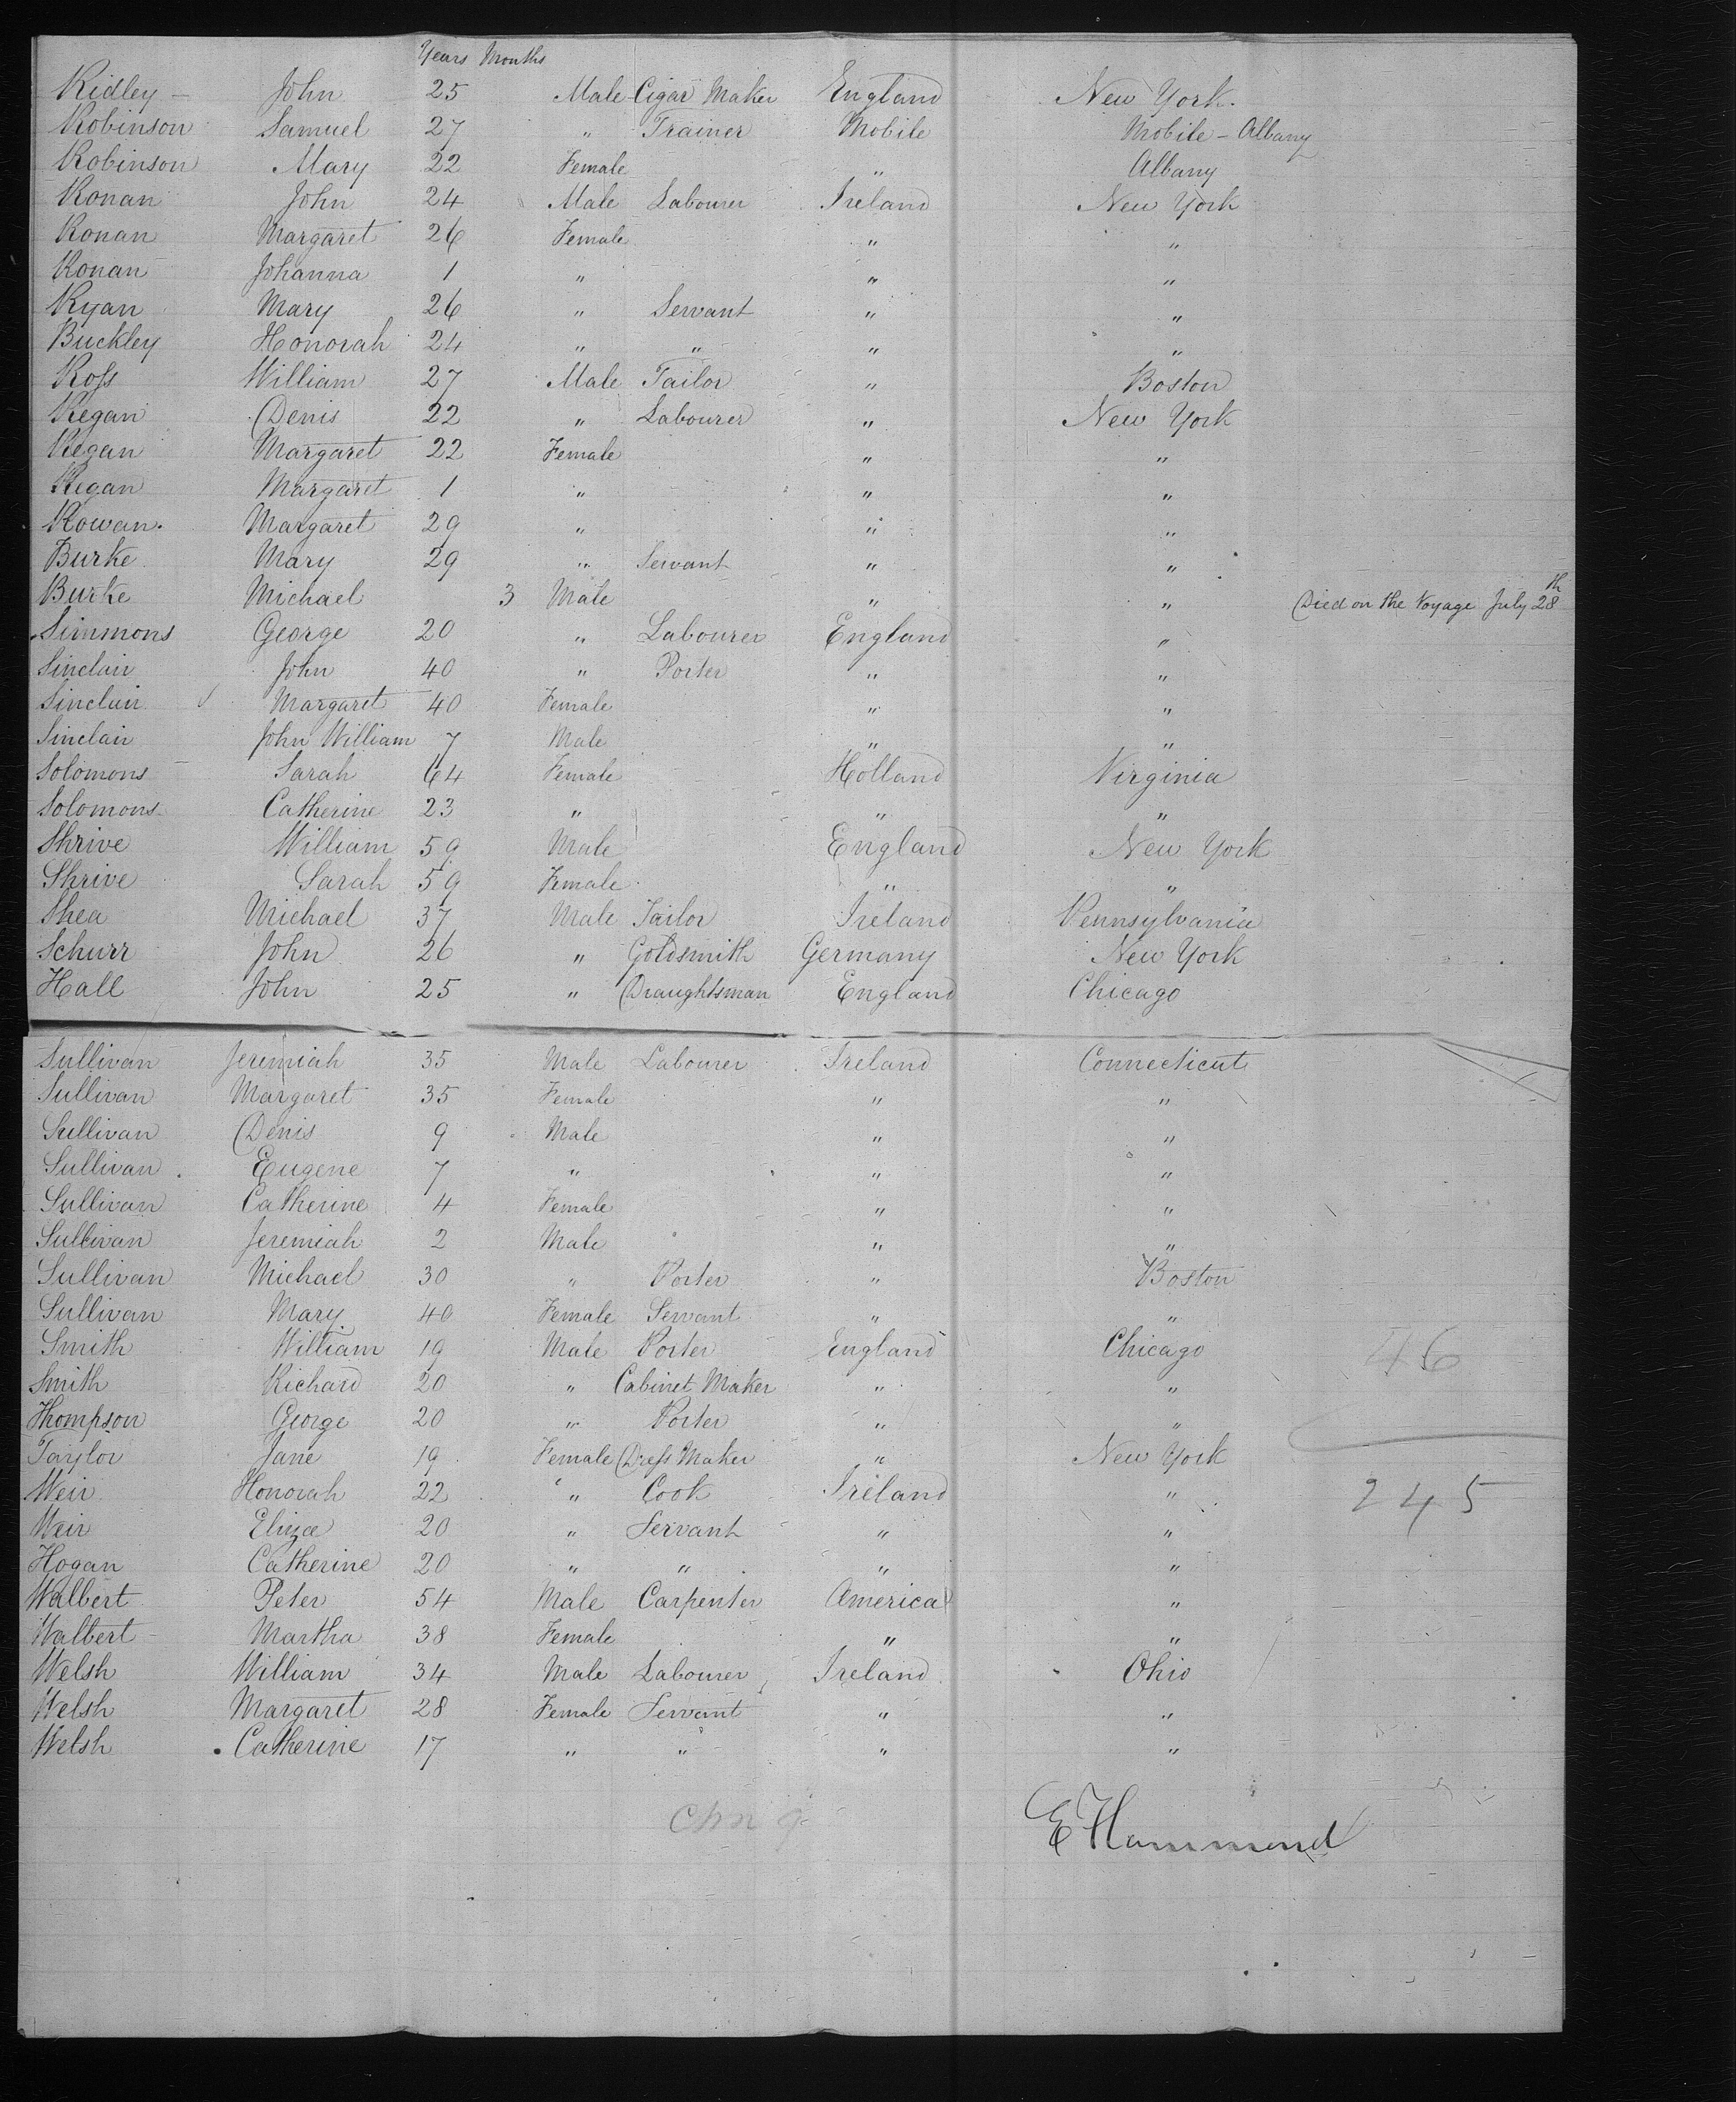 Years Months
Ridley John 25 Male Cigar Maker England New York.
Robinson Samuel 27 " Trainer Mobile Mobile - Albany
Robinson Mary 22 Female " Albany
Ronan John 24 Male Labourer Ireland New York
Ronan Margaret 26 Female " "
Ronan Johanna 1 " " "
Ryan Mary 26 " Servant " "
Buckley Honorah 24 " " " "
Roſs William 27 Male Tailor " Boston
Regan Denis 22 " Labourer " New York
Regan Margaret 22 Female " "
Regan Margaret 1 " " "
Rowan. Margaret 29 " " "
Burke Mary 29 " Servant " "
Burke Michael 3 Male " " Died on the Voyage July 28th
Simmons George 20 " Labourer England "
Sinclair John 40 " Porter " "
Sinclair Margaret 40 Female " "
Sinclair John William 7 Male " "
Solomons Sarah 64 Female Holland Virginia
Solomons Catherine 23 " " "
Shrive William 59 Male England New York
Shrive Sarah 59 Female " "
Shea Michael 37 Male Tailor Ireland Pennsylvania
Schurr John 26 " Goldsmith Germany New York
Hall John 25 " Draughtsman England Chicago
Sullivan Jeremiah 35 Male Labourer Ireland Connecticut
Sullivan Margaret 35 Female " "
Sullivan Denis 9 Male " "
Sullivan Eugene 7 " " "
Sullivan Catherine 4 Female " "
Sullivan Jeremiah 2 Male " "
Sullivan Michael 30 " Porter " Boston
Sullivan Mary 40 Female Servant " "
Smith William 19 Male Porter England Chicago 46
Smith Richard 20 " Cabinet Maker " "
Thompson George 20 " Porter " "
Taylor Jane 19 Female Dreſs Maker " New York
Weir Honorah 22 " Cook Ireland " 245
Weir Eliza 20 " Servant " "
Hogan Catherine 20 " " " "
Walbert Peter 54 Male Carpenter America "
Walbert Martha 38 Female " "
Welsh William 34 Male Labourer Ireland Ohio
Welsh Margaret 28 Female Servant " "
Welsh Catherine 17 " " " "
E Hammond